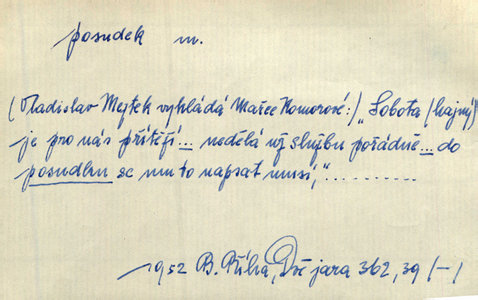 posudek m.
(Vladislav Mejtek vykládá Mařce Komorové:) „Sobota (hajný)
je pro nás přítěží... nedělá už službu pořádně... do
posudku se mu to napsat musí,“..........
1952 B. Říha, Dvě jara 362, 39 (–)